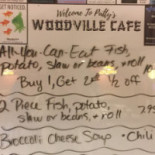 GET NOTICED!
Welcome To Polly's
WOODVILLE CAFE
All-You-Can-Eat Fish,
potato, slaw or beans, + roll
Buy 1, Get 2nd 1/2 off
2 Piece Fish, potato,
slaw or beans, + roll
Broccoli Cheese Soup • Chili